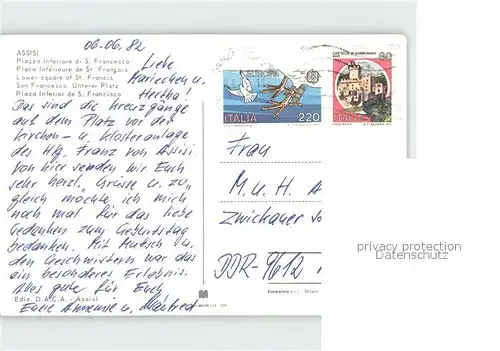 06.06.82
ASSISI
Piazza Inferiore di S. Francesco
Place Inférieure de St. François
Lower square of St. Francis
San Francesco, Unterer Platz
Plaza Inferior de S. Francisco
Liebe
Mariechen u.
Hertha!
Das sind die Kreuzgänge
auf dem Platz vor der
Kirchen- u. Klosteranlage
des Hlg. Franz von Assisi
Von hier senden wir Euch
sehr herzl. Grüsse u. zu-
gleich möchte ich mich
noch mal für das liebe
Gedenken zum Geburtstag
bedanken. Mit Mutsch u.
den Geschwistern war das
ein besonderes Erlebnis.
Alles gute für Euch
Eure Annemie u. Manfred
Ediz. D.A.C.A. - Assisi
EUROPA
ITALIA
220
80
ITALIA
Frau
M. u. H. A
Zwickauer
DDR-9612
privacy protection
Datenschutz